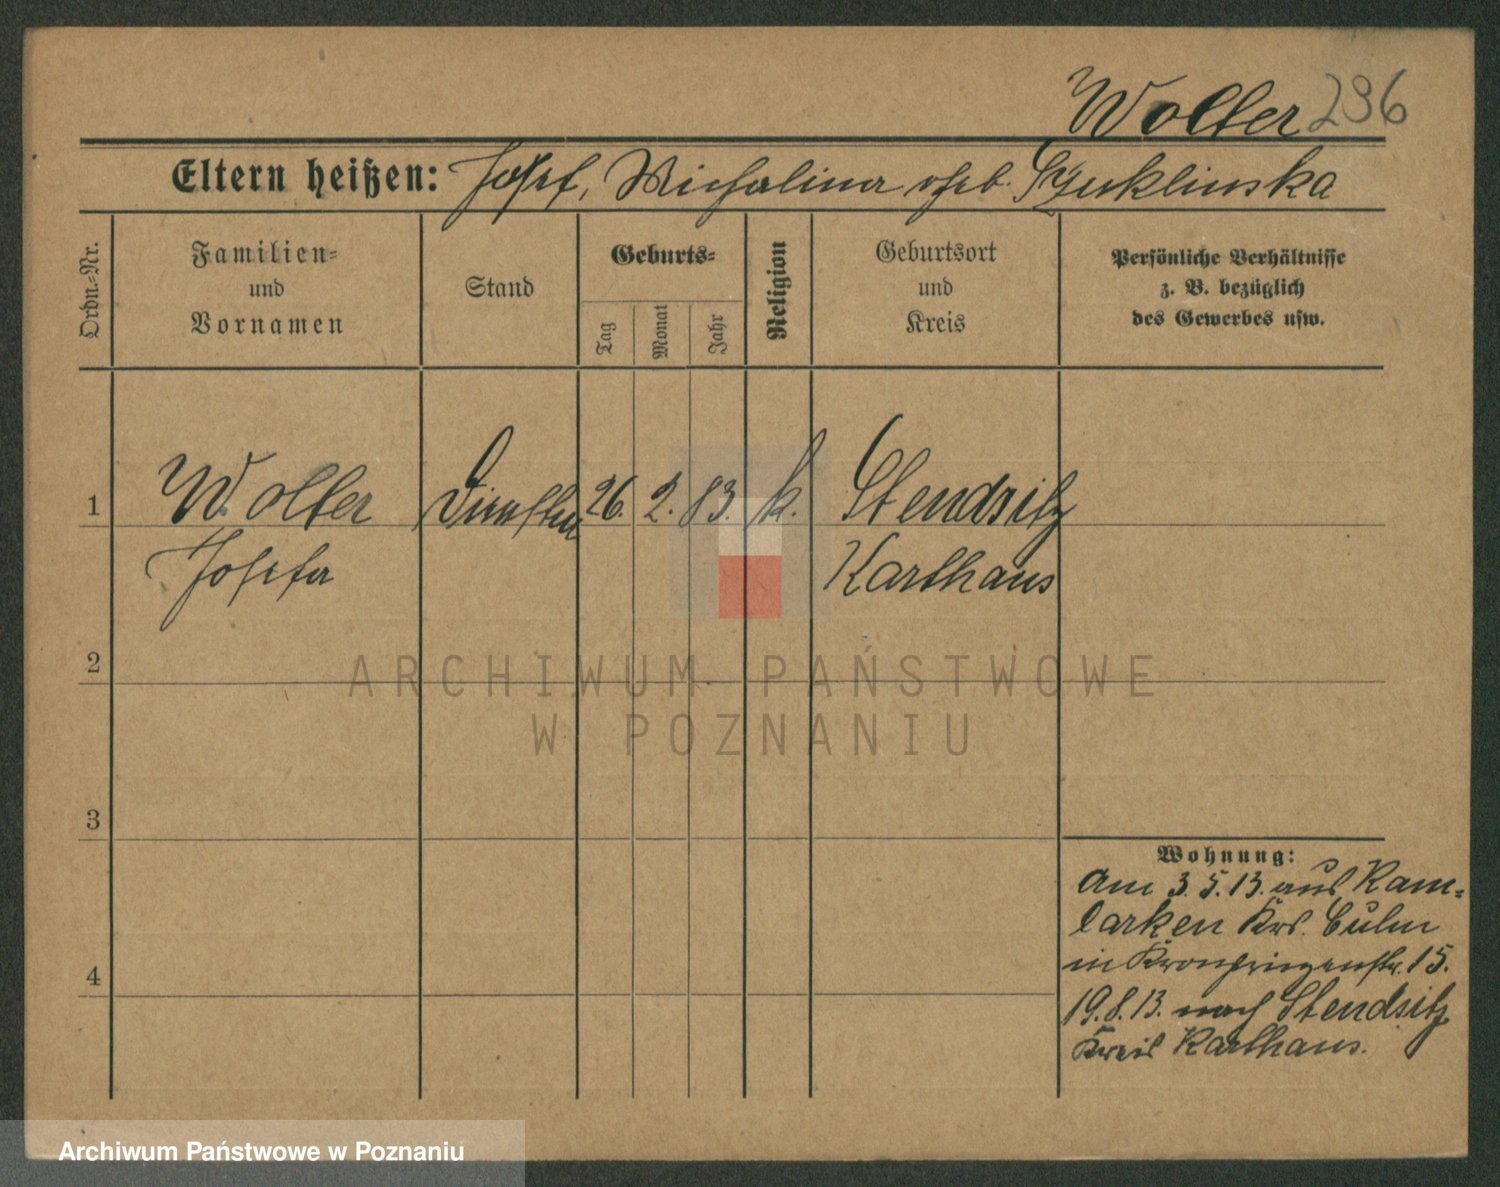 Wolter 296
Eltern heißen: Josef, Michalina geb. Szuklinska
Ordn.-Nr.
Familien-
und
Vornamen
Stand
Geburts-
Tag
Monat
Jahr
Religion
Geburtsort
und
Kreis
Persönliche Verhältnisse
z. B. bezüglich
des Gewerbes usw.
1 Wolter 26. 2. 83. k. Stendsitz
Josefa Karthaus
2
ARCHIWUM PAŃSTWOWE
W POZNANIU
3
Wohnung:
Am 3.5.13. aus Kam-
larken Krs. Culm
in Kronprinzenstr. 15.
4
19.8.13. nach Stendsitz
Kreis Karthaus.
Archiwum Państwowe w Poznaniu